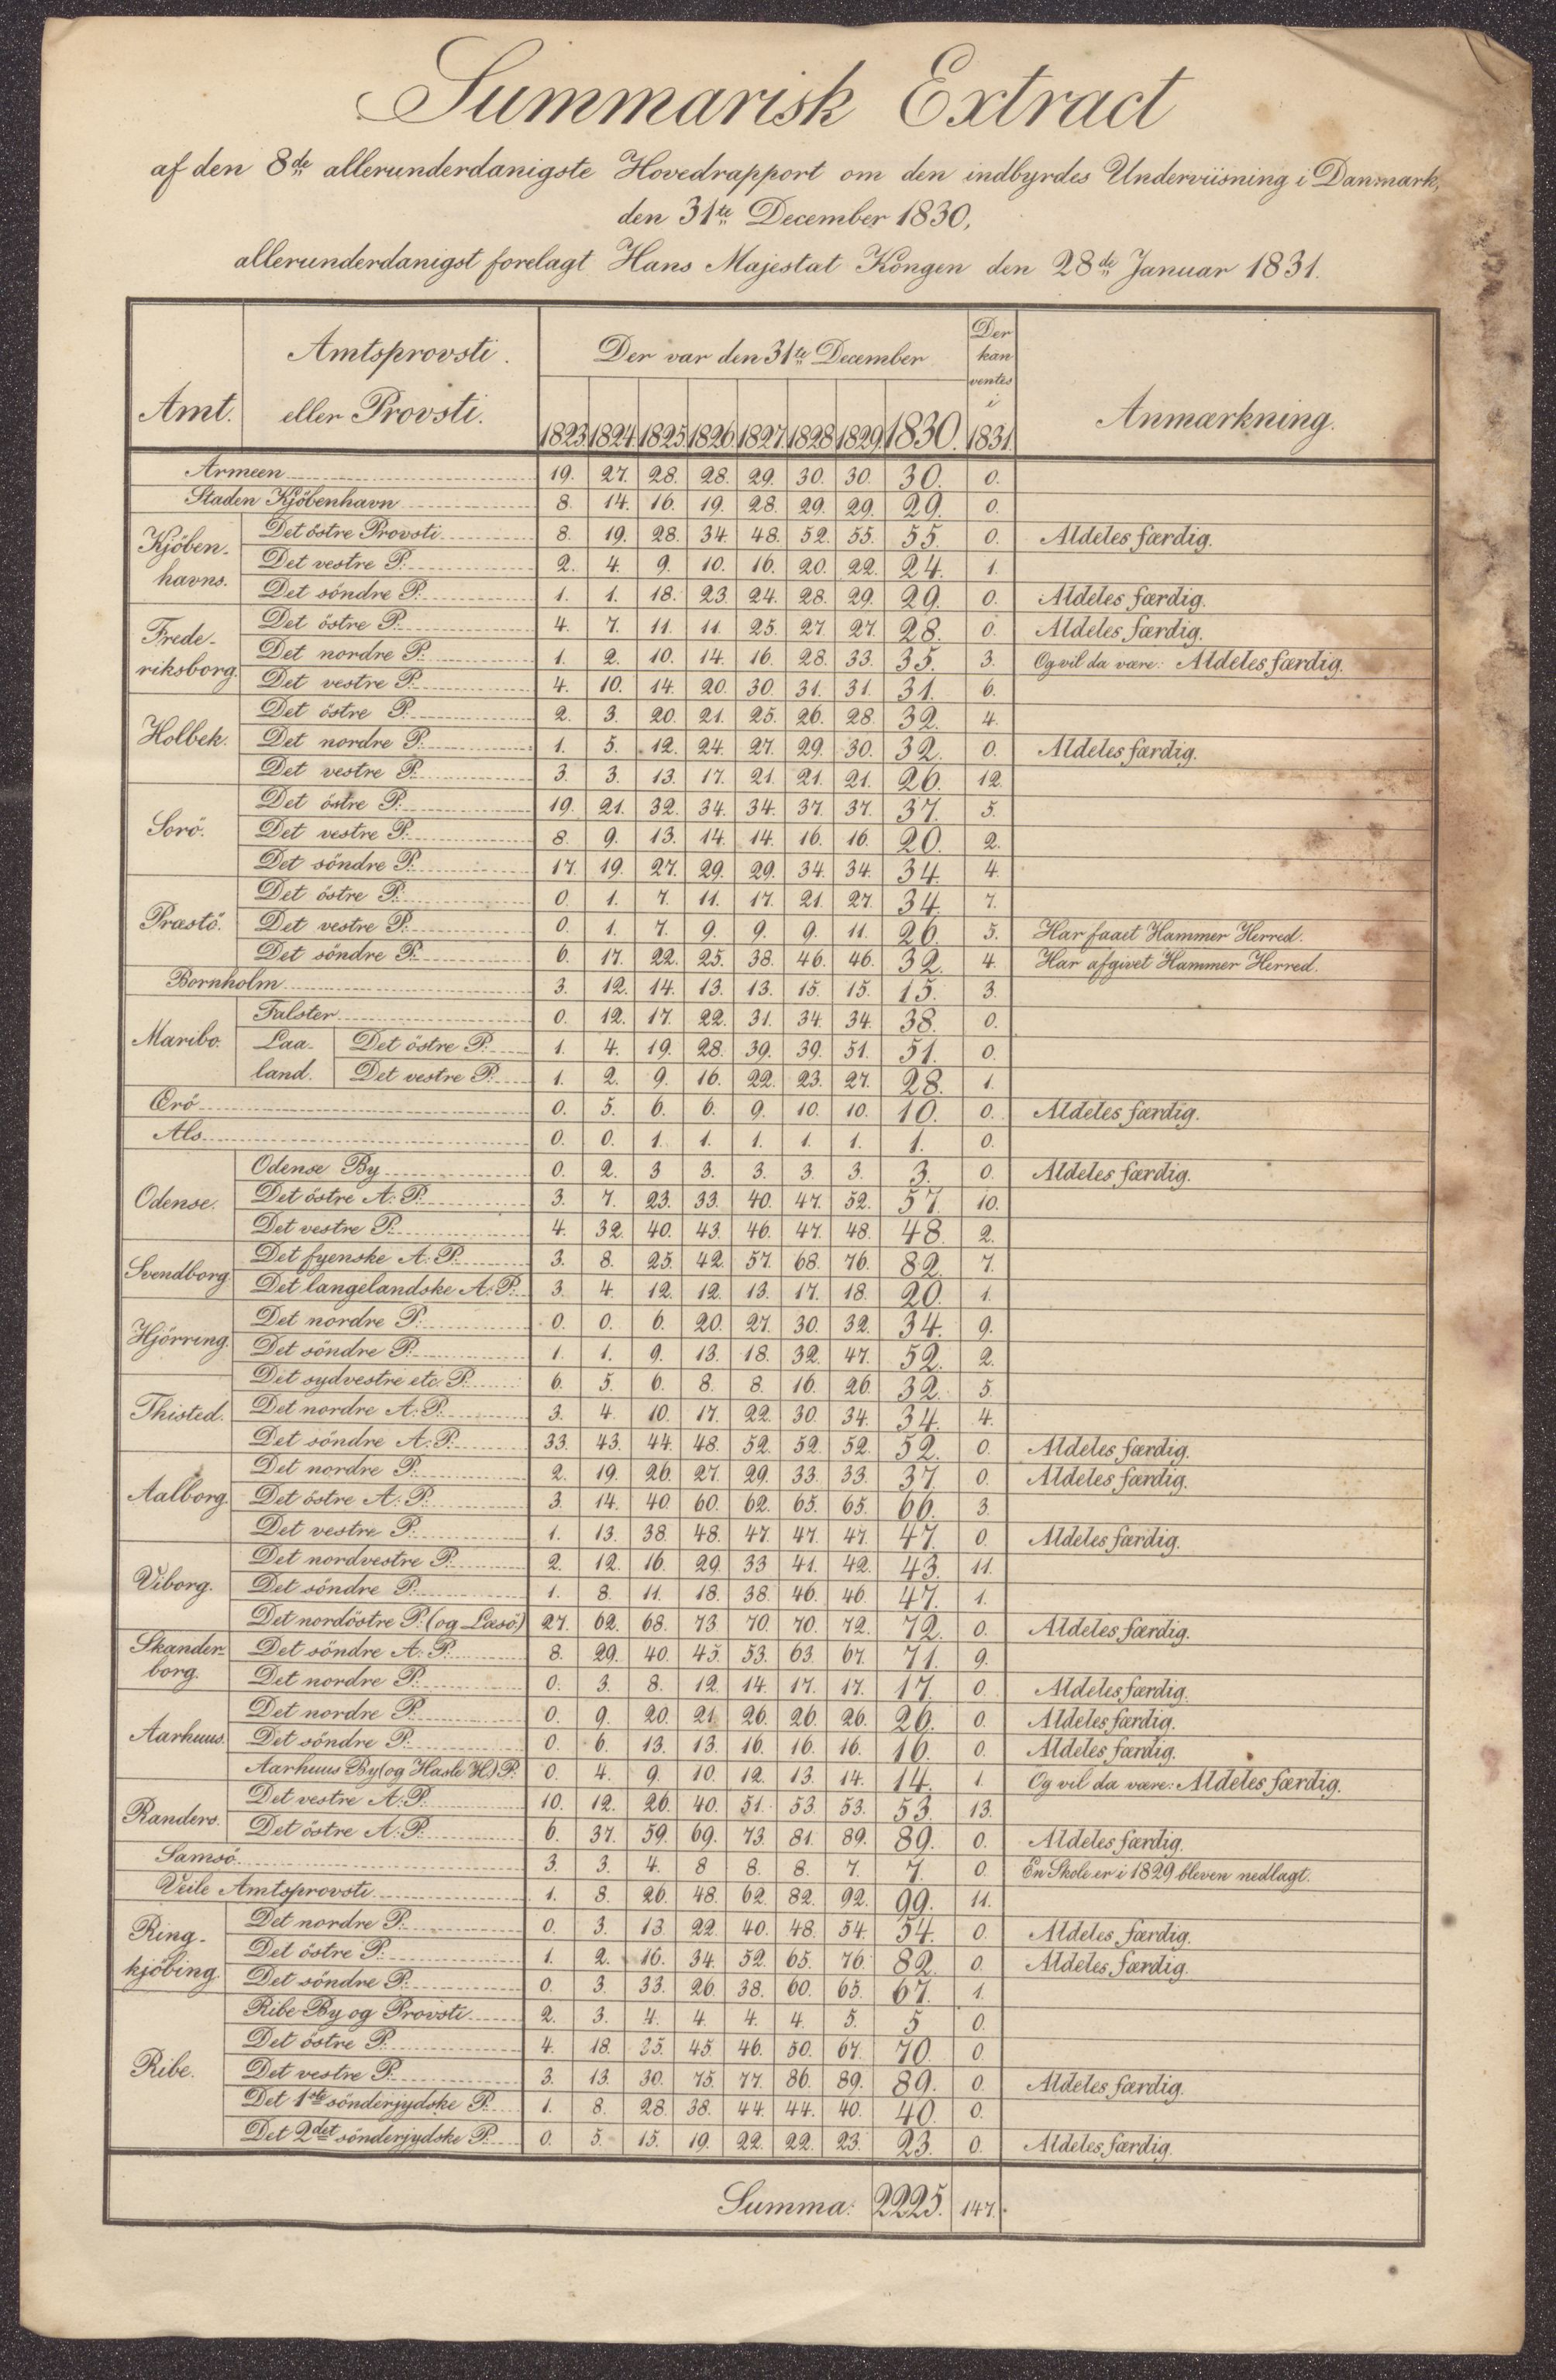 Summarisk Extract
af den 8de allerunderdanigste Hovedrapport om den indbyrdes Underviisning i Danmark,
den 31te December 1830,
allerunderdanigst forelagt Hans Majestæt Kongen den 28de Januar 1831.
Amt. Amtsprovsti eller Provsti. Der var den 31te December Der kan ventes i Anmærkning.
1823. 1824. 1825. 1826. 1827. 1828. 1829. 1830. 1831.
Armeen 19. 27. 28. 28. 29. 30. 30. 30. 0.
Staden Kjöbenhavn 8. 14. 16. 19. 28. 29. 29. 29. 0.
Kjöben- Det östre Provsti 8. 19. 28. 34. 48. 52. 55. 55. 0. Aldeles færdig.
havns. Det vestre P. 2. 4. 9. 10. 16. 20. 22. 24. 1.
Det söndre P. 1. 1. 18. 23. 24. 28. 29. 29. 0. Aldeles færdig.
Frede- Det östre P. 4. 7. 11. 11. 25. 27. 27. 28. 0. Aldeles færdig.
riksborg. Det nordre P. 1. 2. 10. 14. 16. 28. 33. 35. 3. Og vil da være: Aldeles færdig.
Det vestre P. 4. 10. 14. 20. 30. 31. 31. 31. 6.
Holbek. Det östre P. 2. 3. 20. 21. 25. 26. 28. 32. 4.
Det nordre P. 1. 5. 12. 24. 27. 29. 30. 32. 0. Aldeles færdig.
Det vestre P. 3. 3. 13. 17. 21. 21. 21. 26. 12.
Sorö. Det östre P. 19. 21. 32. 34. 34. 37. 37. 37. 5.
Det vestre P. 8. 9. 13. 14. 14. 16. 16. 20. 2.
Det söndre P. 17. 19. 27. 29. 29. 34. 34. 34. 4.
Præstö. Det östre P. 0. 1. 7. 11. 17. 21. 27. 34. 7.
Det vestre P. 0. 1. 7. 9. 9. 9. 11. 26. 5. Har faaet Hammer Herred.
Det söndre P. 6. 17. 22. 25. 38. 46. 46. 32. 4. Har afgivet Hammer Herred.
Bornholm 3. 12. 14. 13. 13. 15. 15. 15. 3.
Maribo. Falster 0. 12. 17. 22. 31. 34. 34. 38. 0.
Laa- Det östre P. 1. 4. 19. 28. 39. 39. 51. 51. 0.
land. Det vestre P. 1. 2. 9. 16. 22. 23. 27. 28. 1.
Œrö 0. 5. 6. 6. 9. 10. 10. 10. 0. Aldeles færdig.
Als 0. 0. 1. 1. 1. 1. 1. 1. 0.
Odense. Odense By 0. 2. 3 3. 3. 3. 3. 3. 0. Aldeles færdig.
Det östre A: P. 3. 7. 23. 33. 40. 47. 52. 57. 10.
Det vestre P. 4. 32. 40. 43. 46. 47. 48. 48. 2.
Svendborg. Det fyenske A: P. 3. 8. 25. 42. 57. 68. 76. 82. 7.
Det langelandske A: P. 3. 4. 12. 12. 13. 17. 18. 20. 1.
Hjörring. Det nordre P. 0. 0. 6. 20. 27. 30. 32. 34. 9.
Det söndre P. 1. 1. 9. 13. 18. 32. 47. 52. 2.
Det sydvestre etc. P. 6. 5. 6. 8. 8. 16. 26. 32. 5.
Thisted. Det nordre A: P. 3. 4. 10. 17. 22. 30. 34. 34. 4.
Det söndre A: P. 33. 43. 44. 48. 52. 52. 52. 52. 0. Aldeles færdig.
Aalborg. Det nordre P. 2. 19. 26. 27. 29. 33. 33. 37. 0. Aldeles færdig.
Det östre A: P. 3. 14. 40. 60. 62. 65. 65. 66. 3.
Det vestre P. 1. 13. 38. 48. 47. 47. 47. 47. 0. Aldeles færdig.
Viborg. Det nordvestre P. 2. 12. 16. 29. 33 41. 42. 43. 11.
Det söndre P. 1. 8. 11. 18. 38. 46. 46. 47. 1.
Det nordöstre P: (og Læsö) 27. 62. 68. 73 70. 70. 72. 72. 0. Aldeles færdig.
Skander- Det söndre A: P. 8. 29. 40. 45. 53. 63. 67. 71. 9.
borg. Det nordre P. 0. 3. 8. 12. 14. 17. 17. 17. 0. Aldeles færdig.
Aarhuus. Det nordre P. 0. 9. 20. 21. 26. 26. 26. 26. 0. Aldeles færdig.
Det söndre P. 0. 6. 13. 13. 16. 16. 16. 16. 0. Aldeles færdig.
Aarhuus By (og Hasle H.) P. 0. 4. 9. 10. 12. 13. 14. 14. 1. Og vil da være: Aldeles færdig.
Randers. Det vestre A: P. 10. 12. 26. 40. 51. 53. 53. 53. 13.
Det östre A: P. 6. 37. 59. 69. 73. 81. 89. 89. 0. Aldeles færdig.
Samsö 3. 3. 4. 8 8. 8. 7. 7. 0. En Skole er i 1829 bleven nedlagt.
Veile Amtsprovsti 1. 8. 26. 48. 62. 82. 92. 99. 11.
Ring- Det nordre P. 0. 3. 13. 22. 40. 48. 54. 54. 0. Aldeles færdig.
kjöbing. Det östre P. 1. 2. 16. 34. 52. 65. 76. 82. 0. Aldeles færdig.
Det söndre P. 0. 3. 33. 26. 38. 60. 65. 67. 1.
Ribe. Ribe By og Provsti 2. 3. 4. 4. 4. 4. 5. 5 0.
Det östre P. 4. 18. 25. 45. 46. 50. 67. 70. 0.
Det vestre P. 3. 13. 30. 75. 77. 86. 89. 89. 0. Aldeles færdig.
Det 1ste sönderjydske P. 1. 8. 28. 38. 44. 44. 40. 40. 0.
Det 2det sönderjydske P. 0. 5. 15. 19. 22. 22. 23. 23. 0. Aldeles færdig.
Summa: 2225. 147.